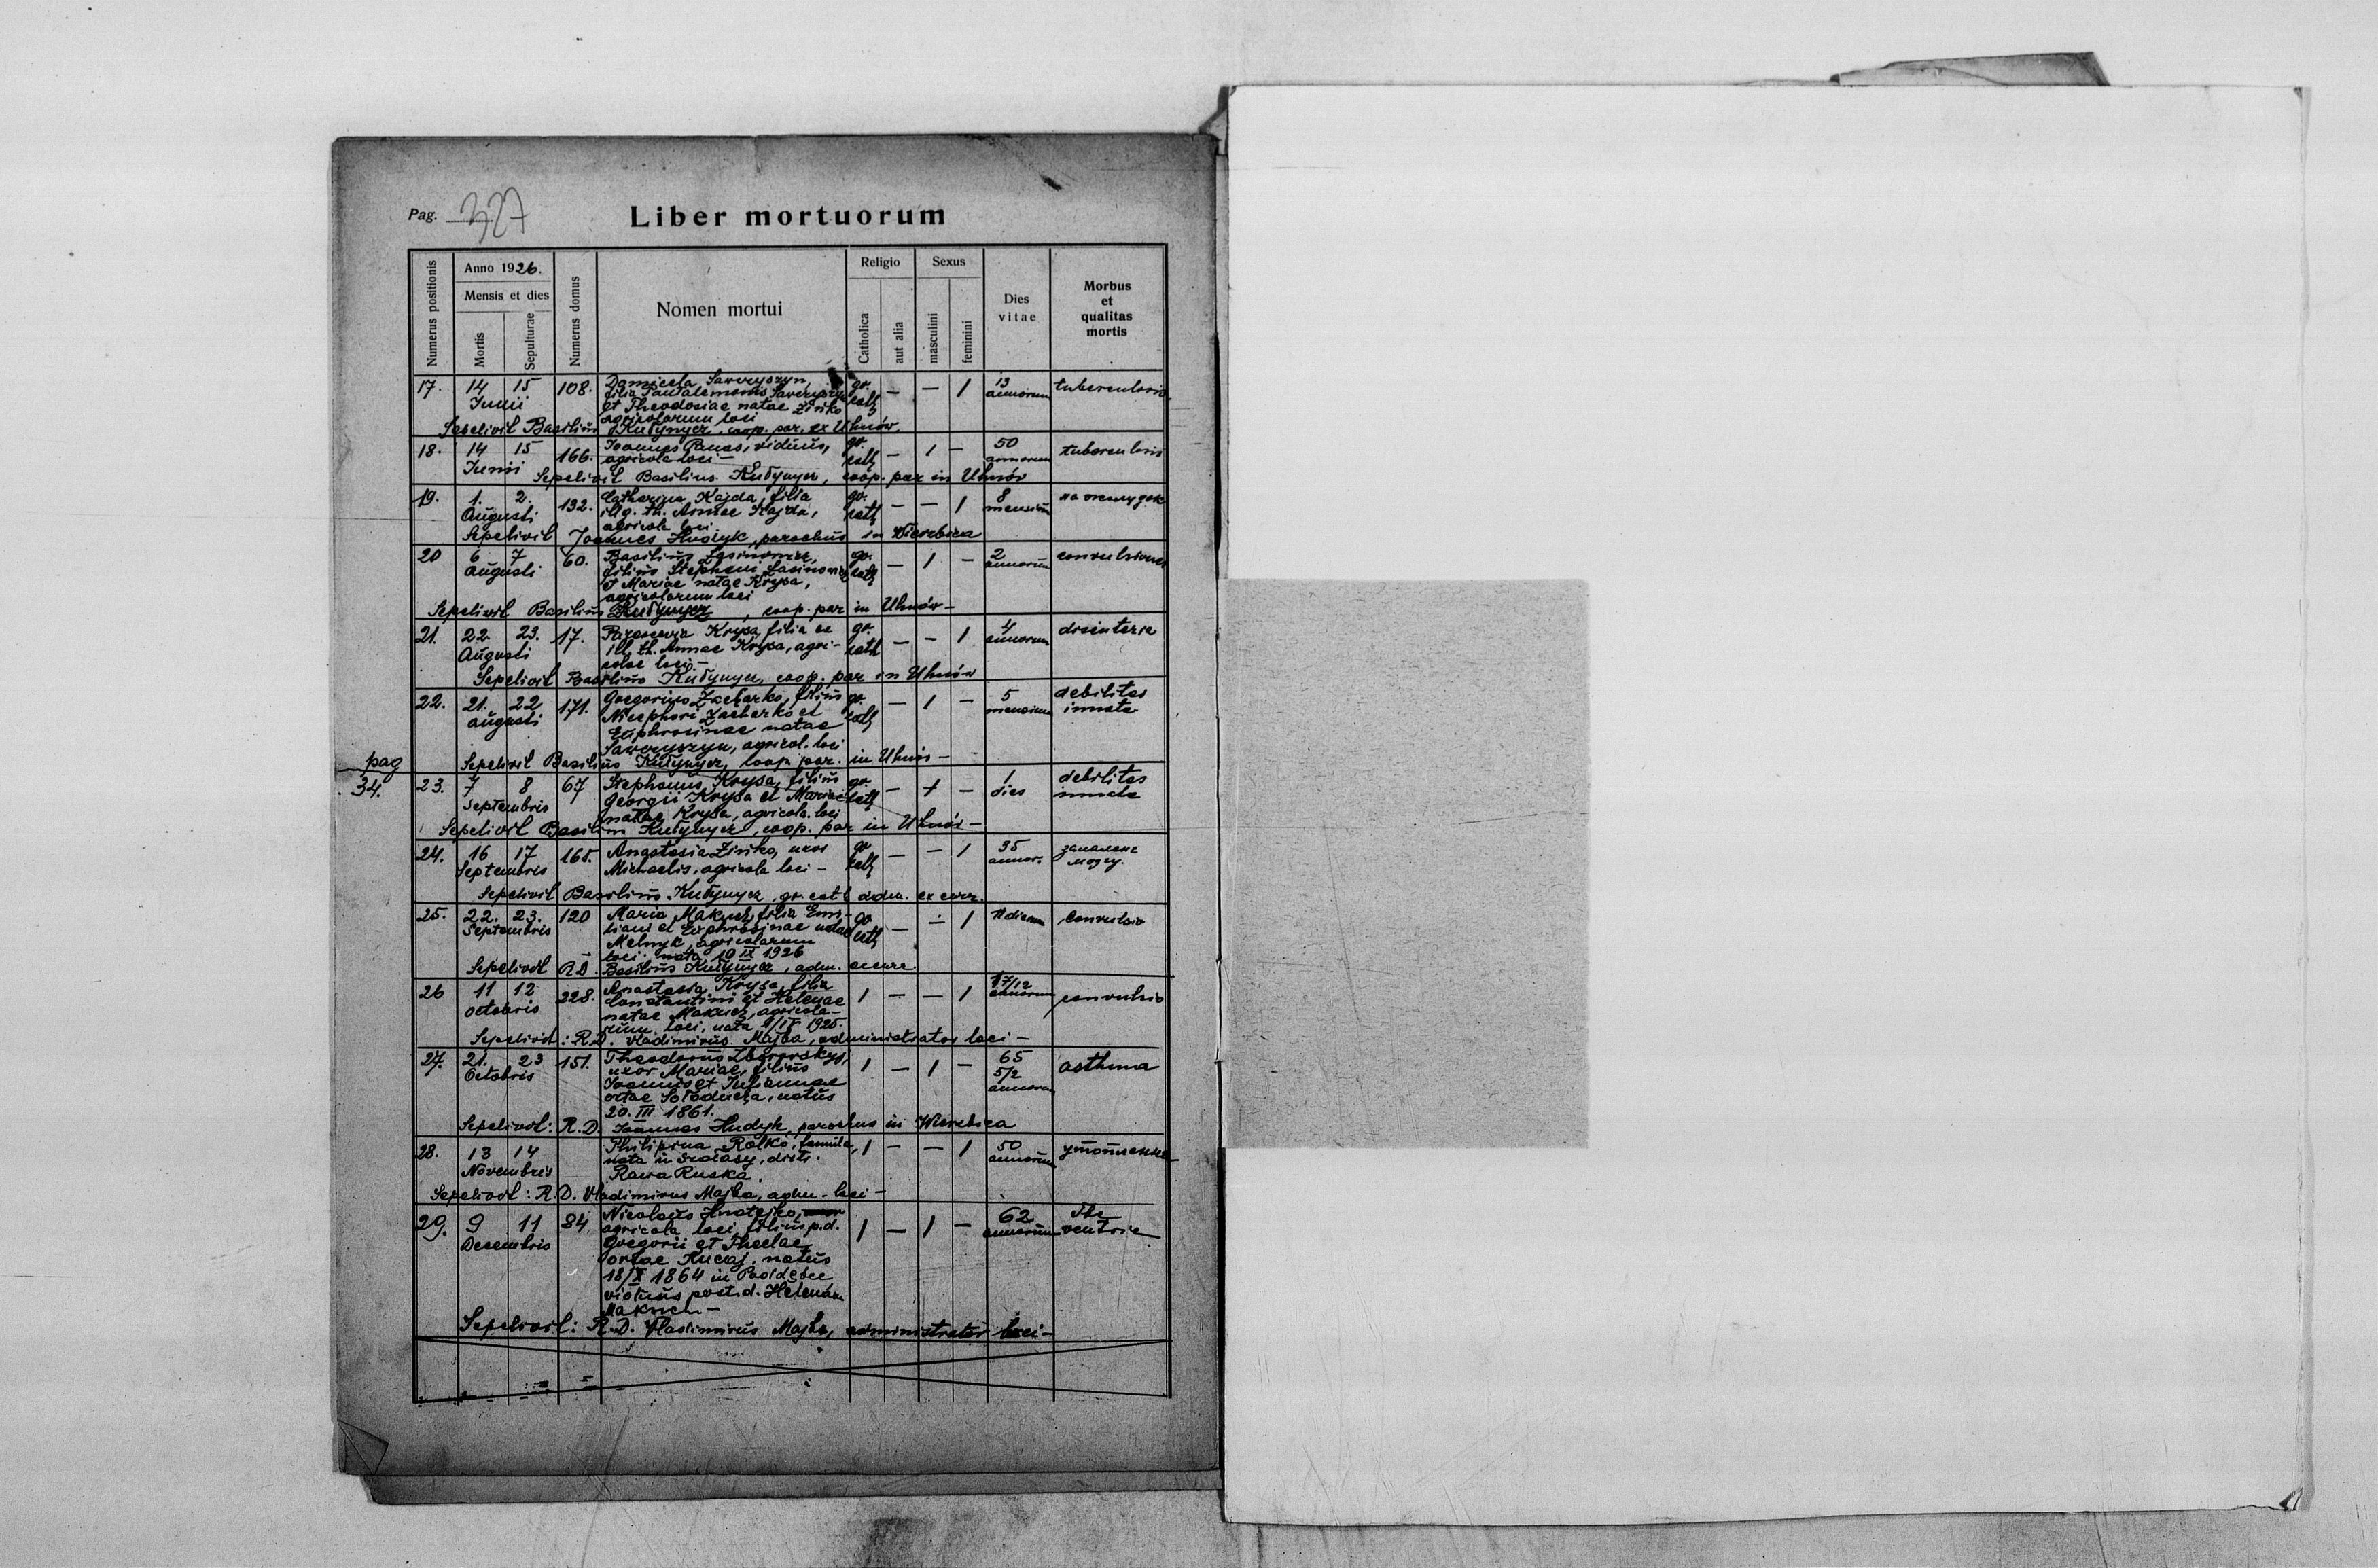 Pag. 327
Liber mortuorum
Numerus positionis
Anno 1926.
Mensis et dies
Mortis
Sepulturae
Numerus domus
Nomen mortui
Religio
Catholica
aut alia
Sexus
masculini
feminini
Dies vitae
Morbus et qualitas mortis
17. 14 15 108. Sawczyszyn, gr. — — 1 13 tuberculosis
Junii filia Pantalemonis Sawczyszyn cath annorum
et Theodosiae natae Żińko
agricolarum loci
Sepelivit Basilius Kuŧynycz, coop. par. ex Uhnów.
18. 14 15 166. Joannes Panas, viduus, gr. — 1 — 50 tuberculosis
Junii agricola loci — cath annorum
Sepelivit Basilius Kuŧynycz, coop. par in Uhnów
19. 1. 2. 132. Catharina Kajda, filia gr. — — 1 8 на жолудок
Augusti illg. th. Annae Kajda, cath mensium
agricola loci
Sepelivit Joannes Hudyk, parochus in Wierzbica
20 6 7 60. Basilius gr. — 1 — 2 convulsiones
Augusti filius Stephani cath annorum
et Mariae natae Krysa,
agricolarum loci
Sepelivit Basilius Kuŧynycz, coop. par in Uhnów —
21. 22. 23. 17. Krysa, filia ex gr. — — 1 4 disenteria
Augusti ill. th. Annae Krysa, agri- cath annorum
colae loci —
Sepelivit Basilius Kuŧynycz, coop. par in Uhnów
22. 21. 22 171. Gregorius Zacharko, filius gr. — 1 — 5 debilitas
augusti Nicephori Zacharko et cath mensium innata
Euphrosinae natae
Sawczyszyn, agricol. loci
Sepelivit Basilius Kuŧynycz, coop. par. in Uhnów —
pag
34.
23. 7 8 67 Stephanus Krysa, filius gr. — 1 — 1 debilitas
Septembris Georgii Krysa et Mariae cath dies innata
natae Krysa, agricola. loci
Sepelivit Basilius Kuŧynycz, coop. par in Uhnów —
24. 16 17 165. Anastasia Żińko, uxor gr — — 1 35 запалене
Septembris Michaelis, agricola loci — cath annor. мозгу.
Sepelivit Basilius Kuŧynycz, gr. cath adm. ex curr.
25. 22. 23. 120 Maria Makuch, filia Emi- gr — — 1 11 dierum Convulsio
Septembris liani et Euphrosinae natae cath
Melnyk, agricolarum
loci. nata 10 IX 1926
Sepelivit R.D. Basilius Kuŧynycz, adm. excurr
26 11 12 228. Anastasia Krysa, filia 1 — — 1 1 7/12 convulsio
octobris Constantini et Helenae annorum
natae Makuch, agricola-
rum loci, nata 1925.
Sepelivit: R.D. Vladimirus Majba, administrator loci —
27. 21. 23 151. Theodorus Zborowskyj, 1 — 1 — 65 asthma
Octobris uxor Mariae, filius 5/2
Joannis et Julianae annorum
ortae Sołoducha, natus
20. III 1861.
Sepelivit: R.D. Joannes Hudyk, parochus in Wierzbica
28. 13 14 Philipina Rolko, famula, 1 — — 1 50 утопленна
Novembris nata in distr. annorum
Rawa Ruska.
Sepelivit: R.D. Vladimirus Majba, adm. loci —
29. 9 11 84 Nicolaus Hnatejko, 1 — 1 — 62
Decembris agricola loci, filius p.d. annorum ventris
Gregorii et Theclae
ortae Kucaj, natus
18/X 1864 in
viduus post. d. Helenam
Makuch —
Sepelivit: R.D. Vladimirus Majba, administrator loci —